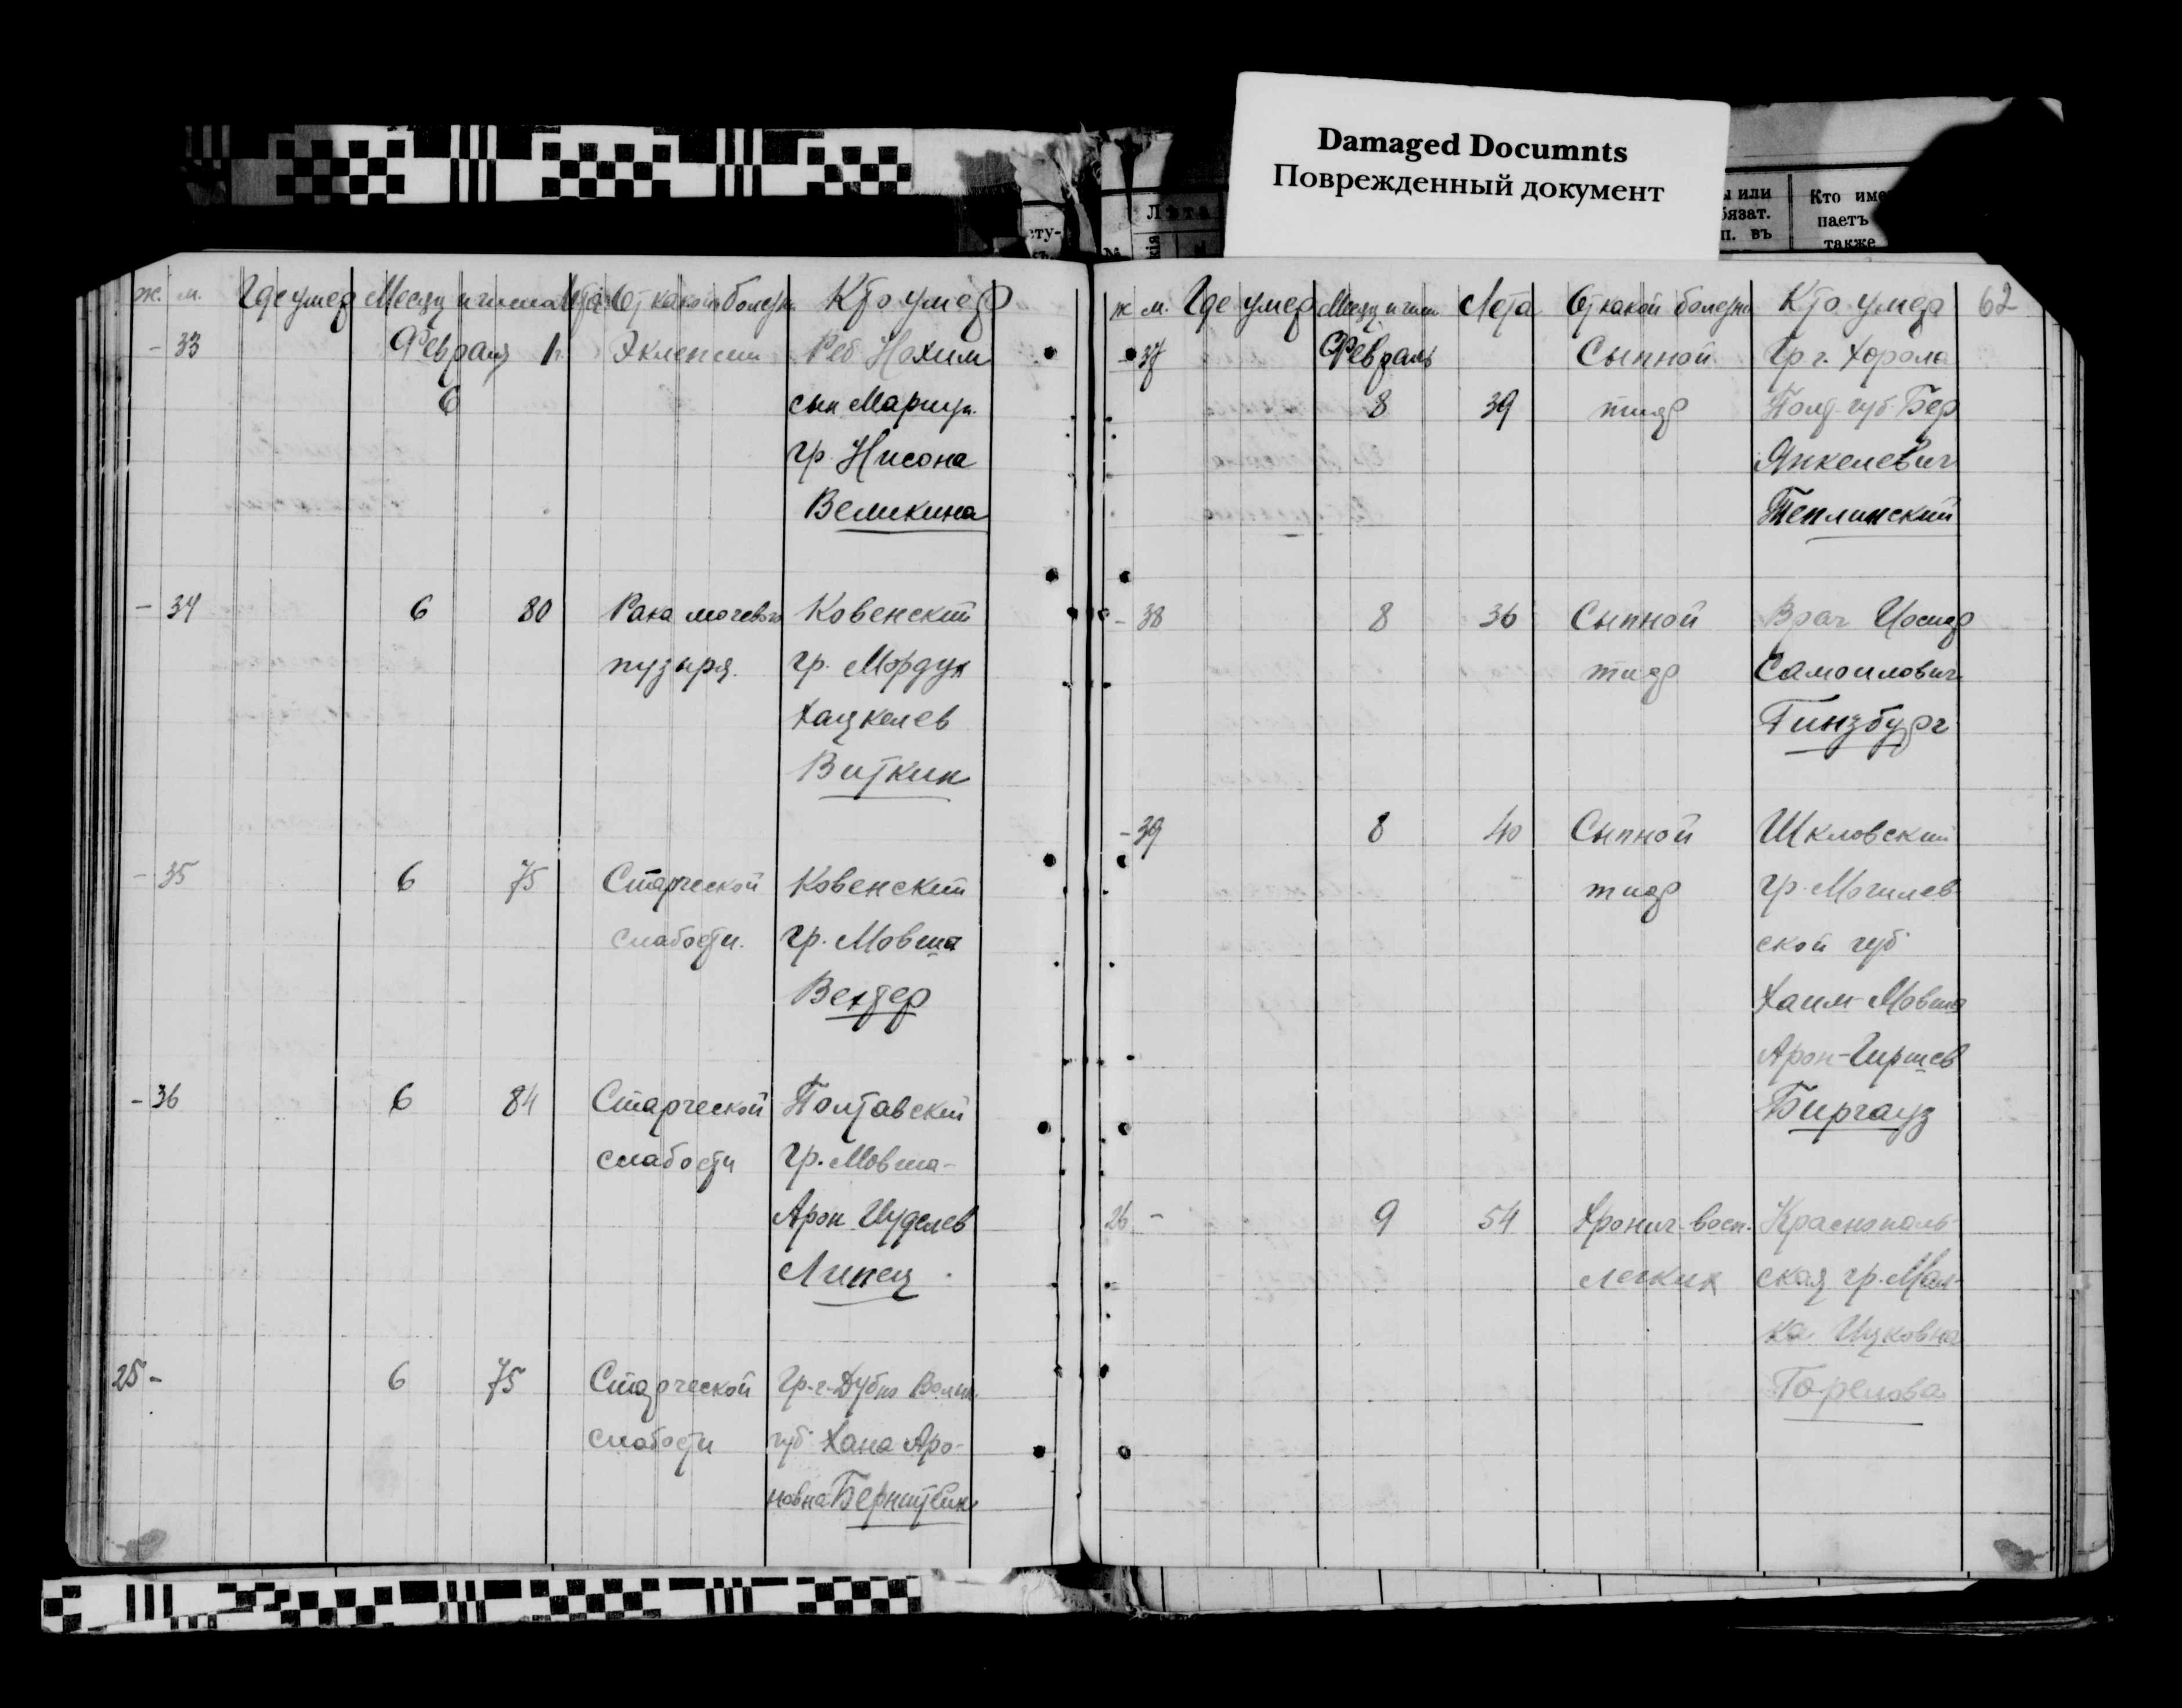 Damaged Documnts
Поврежденный документ
ету-
Лѣта
кія
ы или
бязат.
п. въ
Кто име
паетъ
также
ж. м. Где умер Месяц и число Лета От какой болезн. Кто умер
- 33 Февраля 1 г. Эклепсии Реб Нохим
6 сын Мариуп.
гр. Нисона
Великина
- 34 6 80 Рака мочевого Ковенский
пузыря. гр. Мордух
Хацкелев
Виткин
- 35 6 75 Старческой Ковенский
слабости. гр. Мовша
Векдер
- 36 6 84 Старческой Полтавский
слабости гр. Мовша-
Арон Иуделев
Липец
25 - 6 75 Старческой гр. г. Дубно Волын.
слабости губ. Хана Аро-
новна Бернштейн
ж м. Где умер Месяц и числ. Лета От какой болезни Кто умер 62
- 37 Февраль Сыпной Гр г. Хорола
8 39 тиф Полт. губ. Бер
Янкелевич
Теплинский
- 38 8 36 Сыпной Врач Иосиф
тиф Самоилович
Гинзбург
- 39 8 40 Сыпной Шкловский
тиф гр. Могилев
ской губ
Хаим-Мовша
Арон-Гиршев
Биргауз
26 - 9 54 Хронич. восп. Краснополь-
легких ская гр. Мал-
ка Ицковна
Горелова